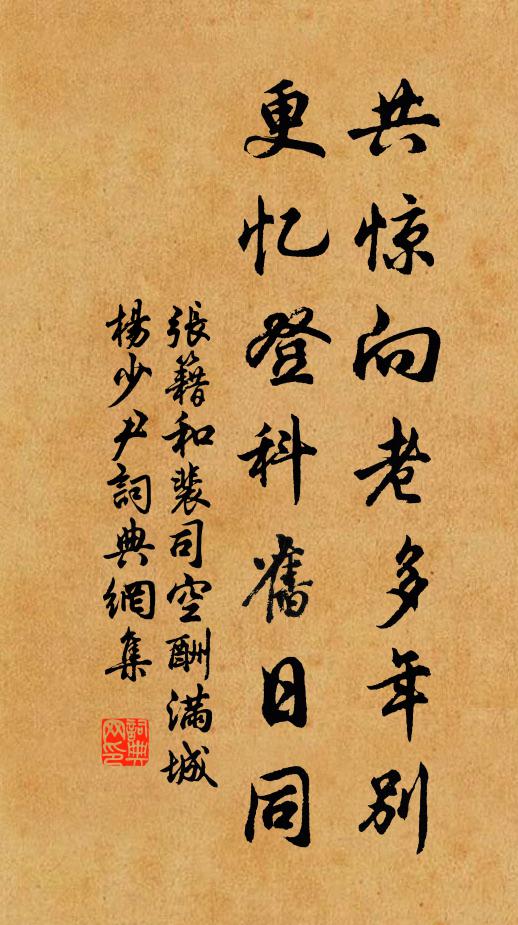 共惊向老多年别
更忆登科舊日同
張籍和裴司空酬满城
楊少尹詞典網集
詞典网印